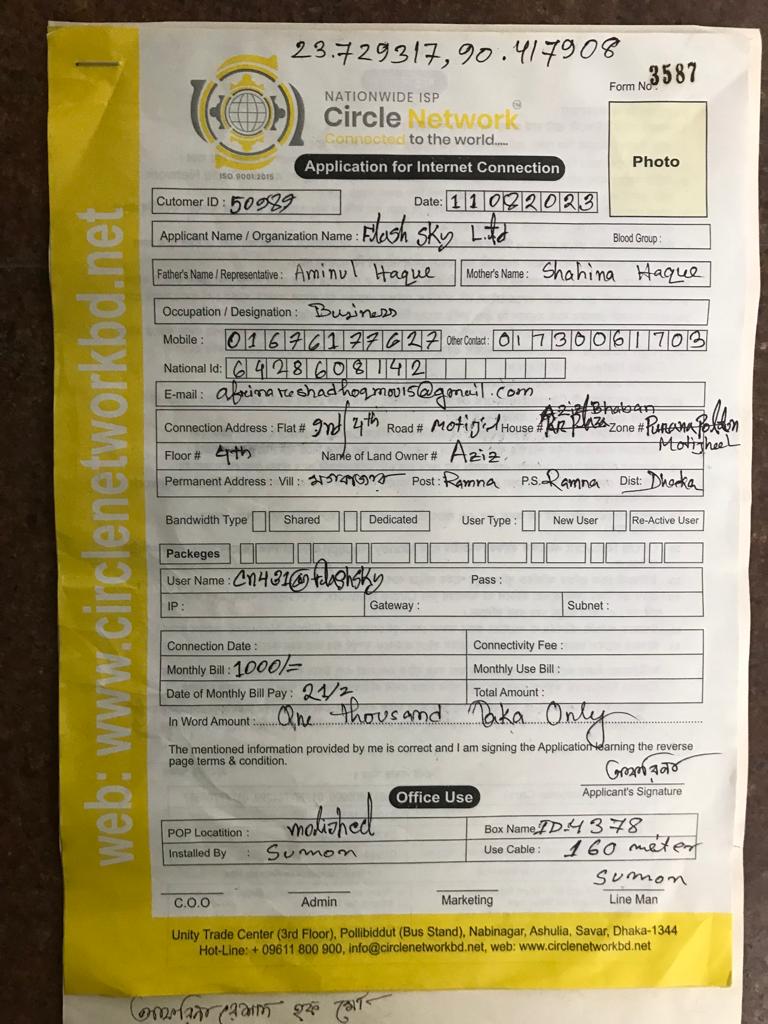 23.729317, 90.417908
Form No. 3587
NATIONWIDE ISP
Circle Network™
Connected to the world.....
ISO 9001:2015
Application for Internet Connection
Photo
Cutomer ID : 50989 Date: 11082023
Applicant Name / Organization Name : Flash Sky Ltd Blood Group :
Father's Name / Representative : Aminul Haque Mother's Name : Shahina Haque
Occupation / Designation : Business
Mobile : 01676177627 Other Contact : 01730061703
National Id: 6428608142
E-mail : @gmail.com
Aziz Bhaban
Connection Address : Flat # 3rd/4th Road # Motijel House # Zone # Purana Paltan
Motijheel
Floor # 4th Name of Land Owner # Aziz.
Permanent Address : Vill : মগবাজার Post : Ramna P.S. Ramna Dist: Dhaka
Bandwidth Type Shared Dedicated User Type : New User Re-Active User
Packeges
User Name : Cn431@flashsky Pass :
IP : Gateway : Subnet :
Connection Date : Connectivity Fee :
Monthly Bill : 1000/= Monthly Use Bill :
Date of Monthly Bill Pay : 21/2 Total Amount :
In Word Amount :..... One thousand Taka Only
The mentioned information provided by me is correct and I am signing the Application learning the reverse
page terms & condition.
আফরিনা
Applicant's Signature
Office Use
POP Locatition : motijheel Box Name ID-4378
Installed By : Sumon Use Cable : 160 meter
Sumon
C.O.O Admin Marketing Line Man
Unity Trade Center (3rd Floor), Pollibiddut (Bus Stand), Nabinagar, Ashulia, Savar, Dhaka-1344
Hot-Line: + 09611 800 900, info@circlenetworkbd.net, web: www.circlenetworkbd.net
web: www.circlenetworkbd.net
আফরিনা রেশাদ হক মৌ